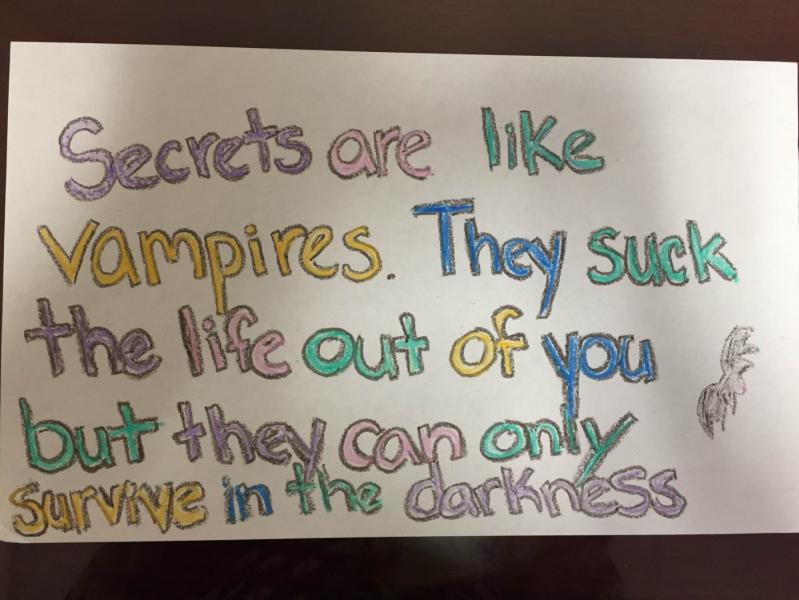 Secrets are like
vampires. They suck
the life out of you
but they can only
survive in the darkness